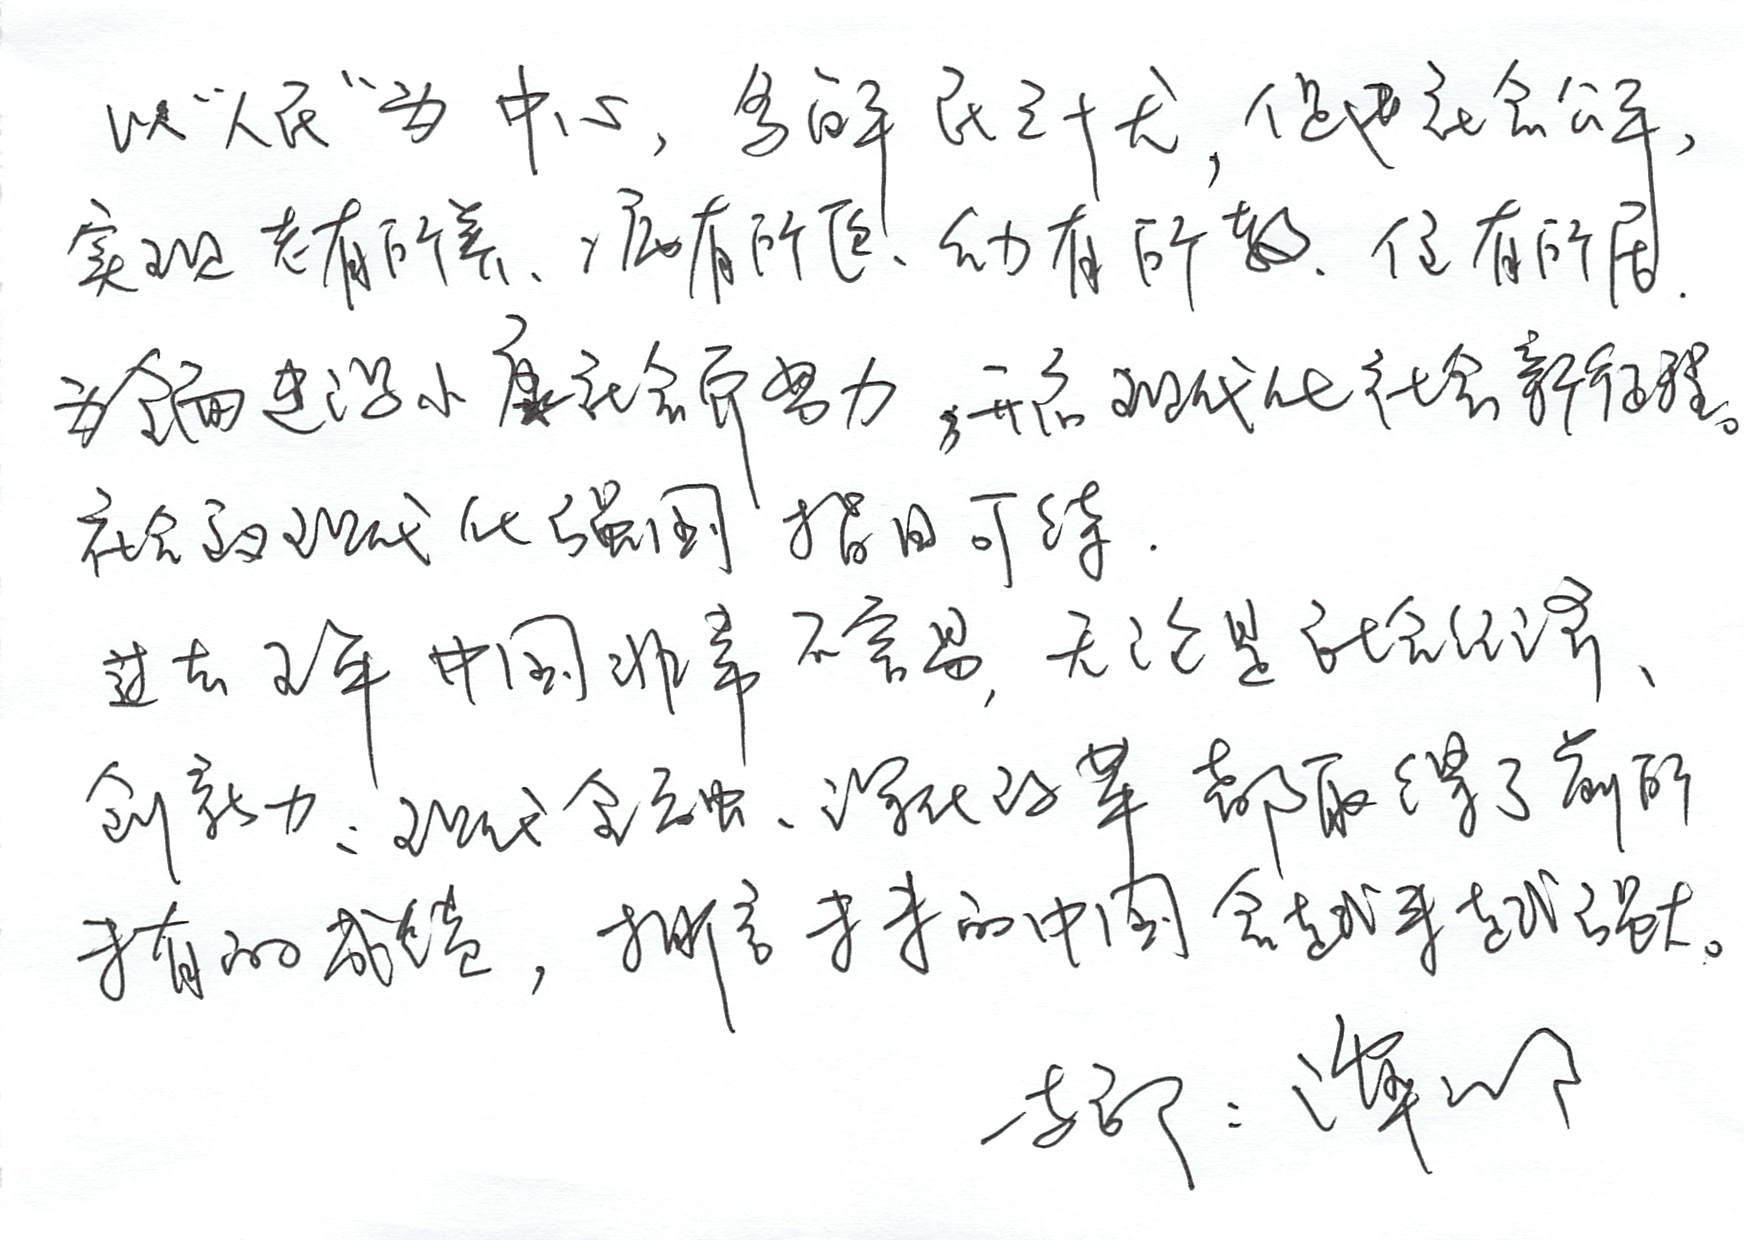 以“人民”为中心，务解民之十尤，促进社会公平，
实现老有所养、病有所医、幼有所教、住有所居.
为全面建设小康社会而努力，开启现代化社会新征程。
社会主义现代化强国指日可待.
过去五年中国非常不容易，无论是社会经济、
创新力、现代金融、深化改革都取得了前所
未有的成绩，相信未来的中国会越来越强大。